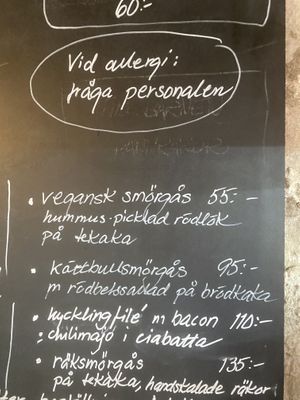 60:-
Vid allergi:
fråga personalen
• vegansk smörgås 55:-
hummus·picklad rödlök
på tekaka
• köttbullsmörgås 95:-
m rödbetssallad på brödkaka
• kycklingfilé m bacon 110:-
chilimajo i ciabatta
• räksmörgås 135:-
på tekaka, handskalade räkor